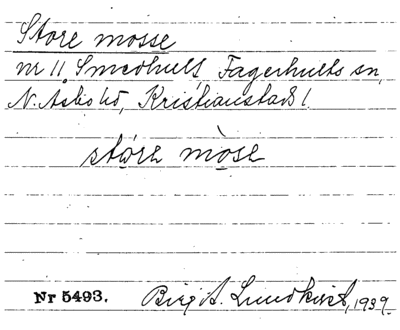 Store mosse
nr 11 Smedhult, Fagerhults sn,
N. Åsbo hd, Kristianstads l.
støre mòse
Nr 5493. Birg. A. Lundkvist, 1939.